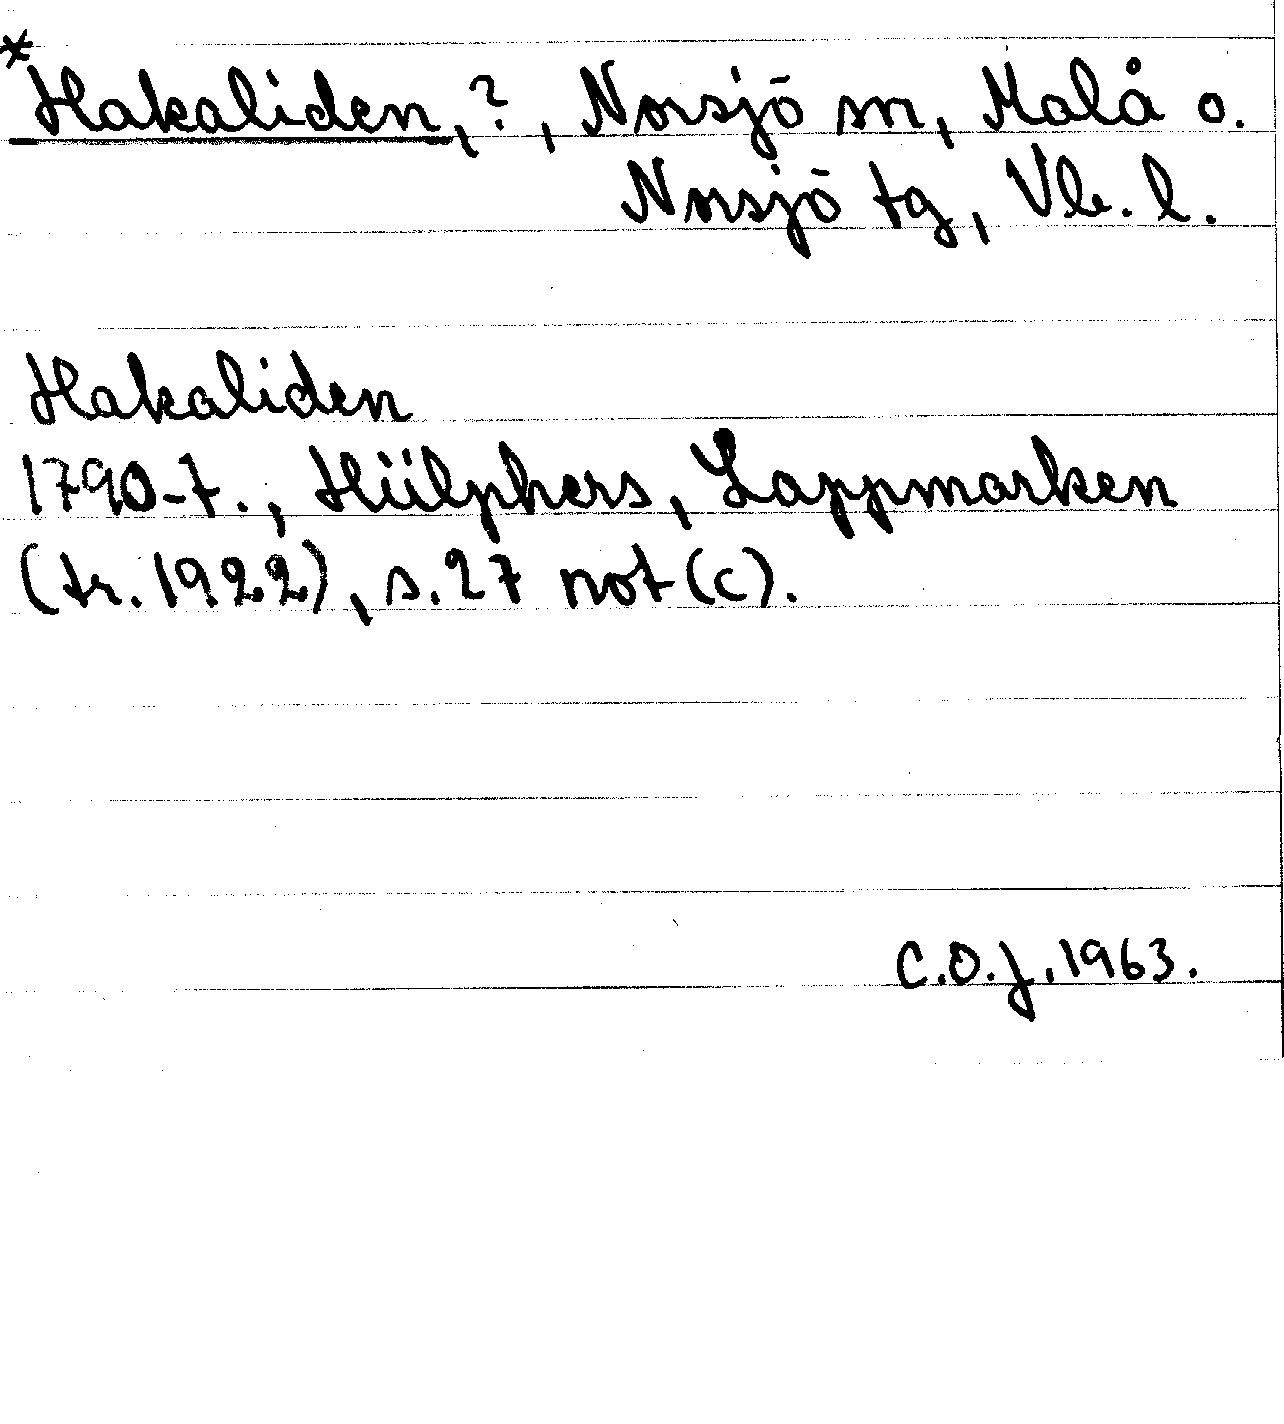 *Hakaliden, ?, Norsjö sn, Malå o.
Norsjö tg, Vb. l.
Hakaliden
1790-t., Hülphers, Lappmarken
(tr. 1922), s. 27 not (c).
C.O.J. 1963.